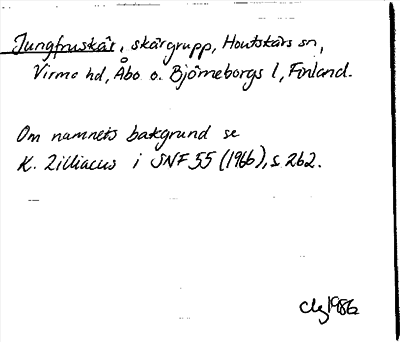 Jungfruskär, skärgrupp, Houtskärs sn,
Virmo hd, Åbo o. Björneborgs l, Finland.
Om namnets bakgrund se
K. Zilliacus i SNF 55 (1966), s. 262.
1986